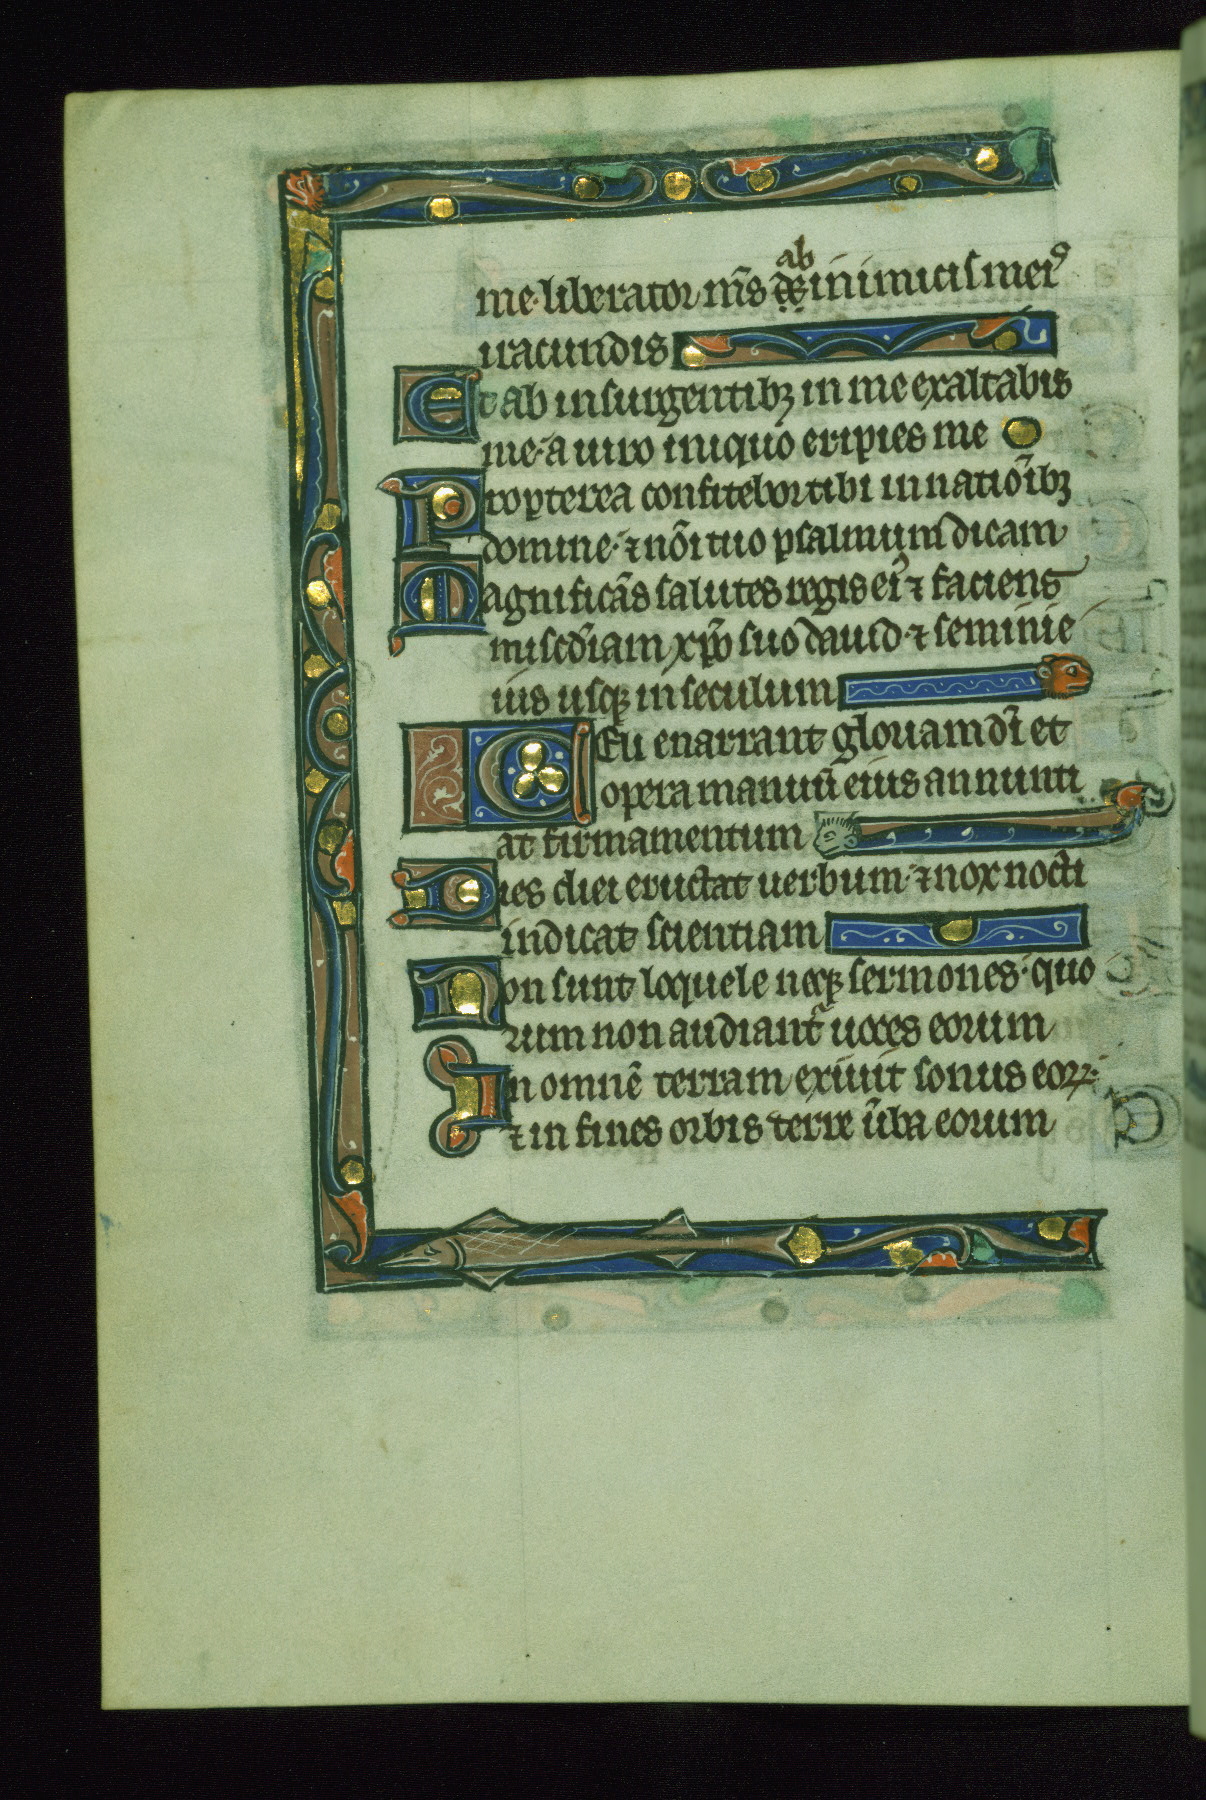 ab
me· liberator m̃s de inimicis meis
iracundis
Et ab insurgentibꝫ in me exaltabis
me· a uiro iniquo eripies me
Propterea confitebor tibi in natiõibꝫ
domine· ⁊ nõi tuo psalmum dicam
Magnificãs salutes regis eiꝰ ⁊ faciens
mis̃cdiam xp̃o suo dauid· ⁊ semini e
ius usqꝫ in seculum
Celi enarrant gloriam dĩ et
opera manuũ eius annunti
at firmamentum
Dies diei eructat uerbum· ⁊ nox nocti
indicat scientiam
Non sunt loquele neqꝫ sermones· quo
rum non audiant᷑ uoces eorum
In omnẽ terram exiuit sonus eoꝝ·
⁊ in fines orbis terre ũba eorum